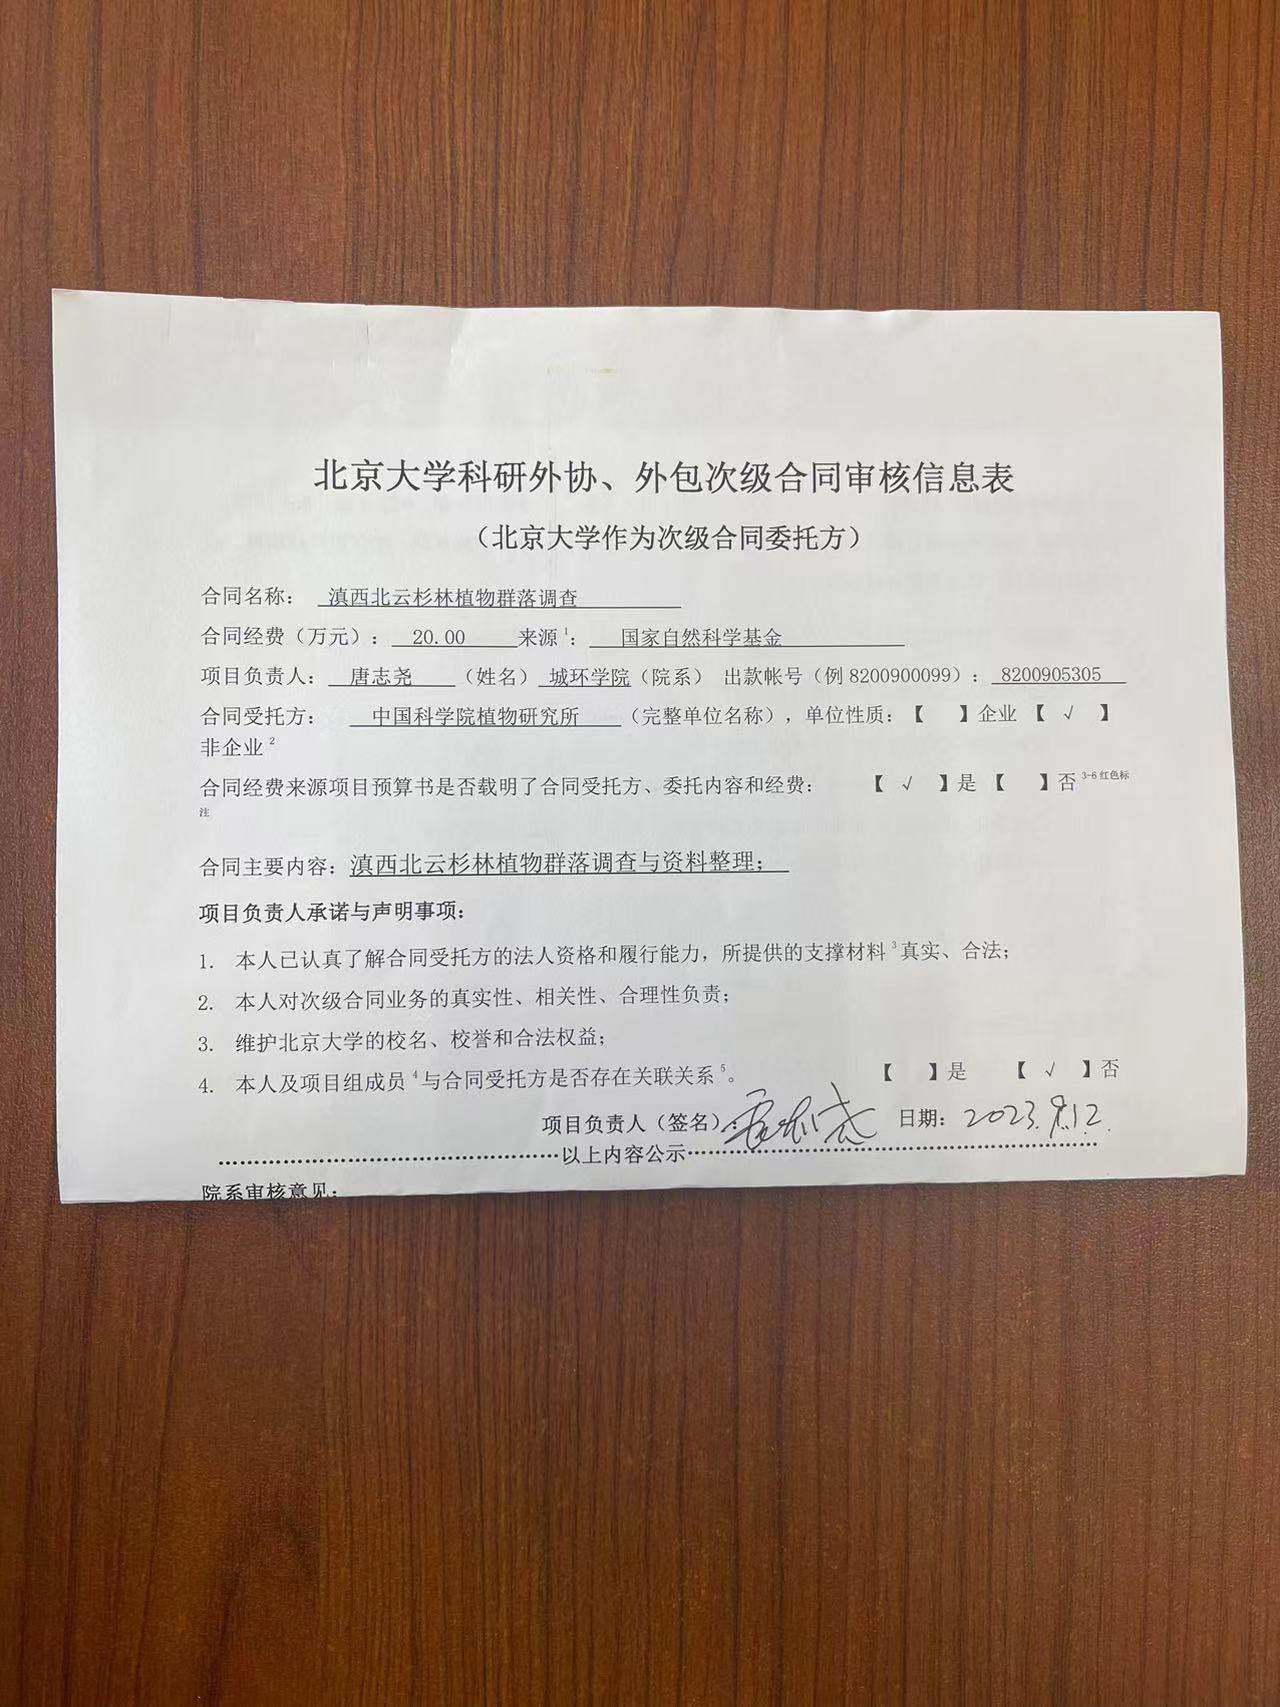 北京大学科研外协、外包次级合同审核信息表
（北京大学作为次级合同委托方）
合同名称： 滇西北云杉林植物群落调查
合同经费（万元）： 20.00 来源1： 国家自然科学基金
项目负责人： 唐志尧 （姓名） 城环学院（院系） 出款帐号（例 8200900099）： 8200905305
合同受托方： 中国科学院植物研究所 （完整单位名称），单位性质：【 】企业 【 √ 】
非企业2
合同经费来源项目预算书是否载明了合同受托方、委托内容和经费： 【 √ 】是 【 】否3-6红色标
注
合同主要内容：滇西北云杉林植物群落调查与资料整理；
项目负责人承诺与声明事项：
1. 本人已认真了解合同受托方的法人资格和履行能力，所提供的支撑材料3真实、合法；
2. 本人对次级合同业务的真实性、相关性、合理性负责；
3. 维护北京大学的校名、校誉和合法权益；
4. 本人及项目组成员4与合同受托方是否存在关联关系5。 【 】是 【 √ 】否
项目负责人（签名）：唐志尧 日期：2023.9.12
以上内容公示
院系审核意见：